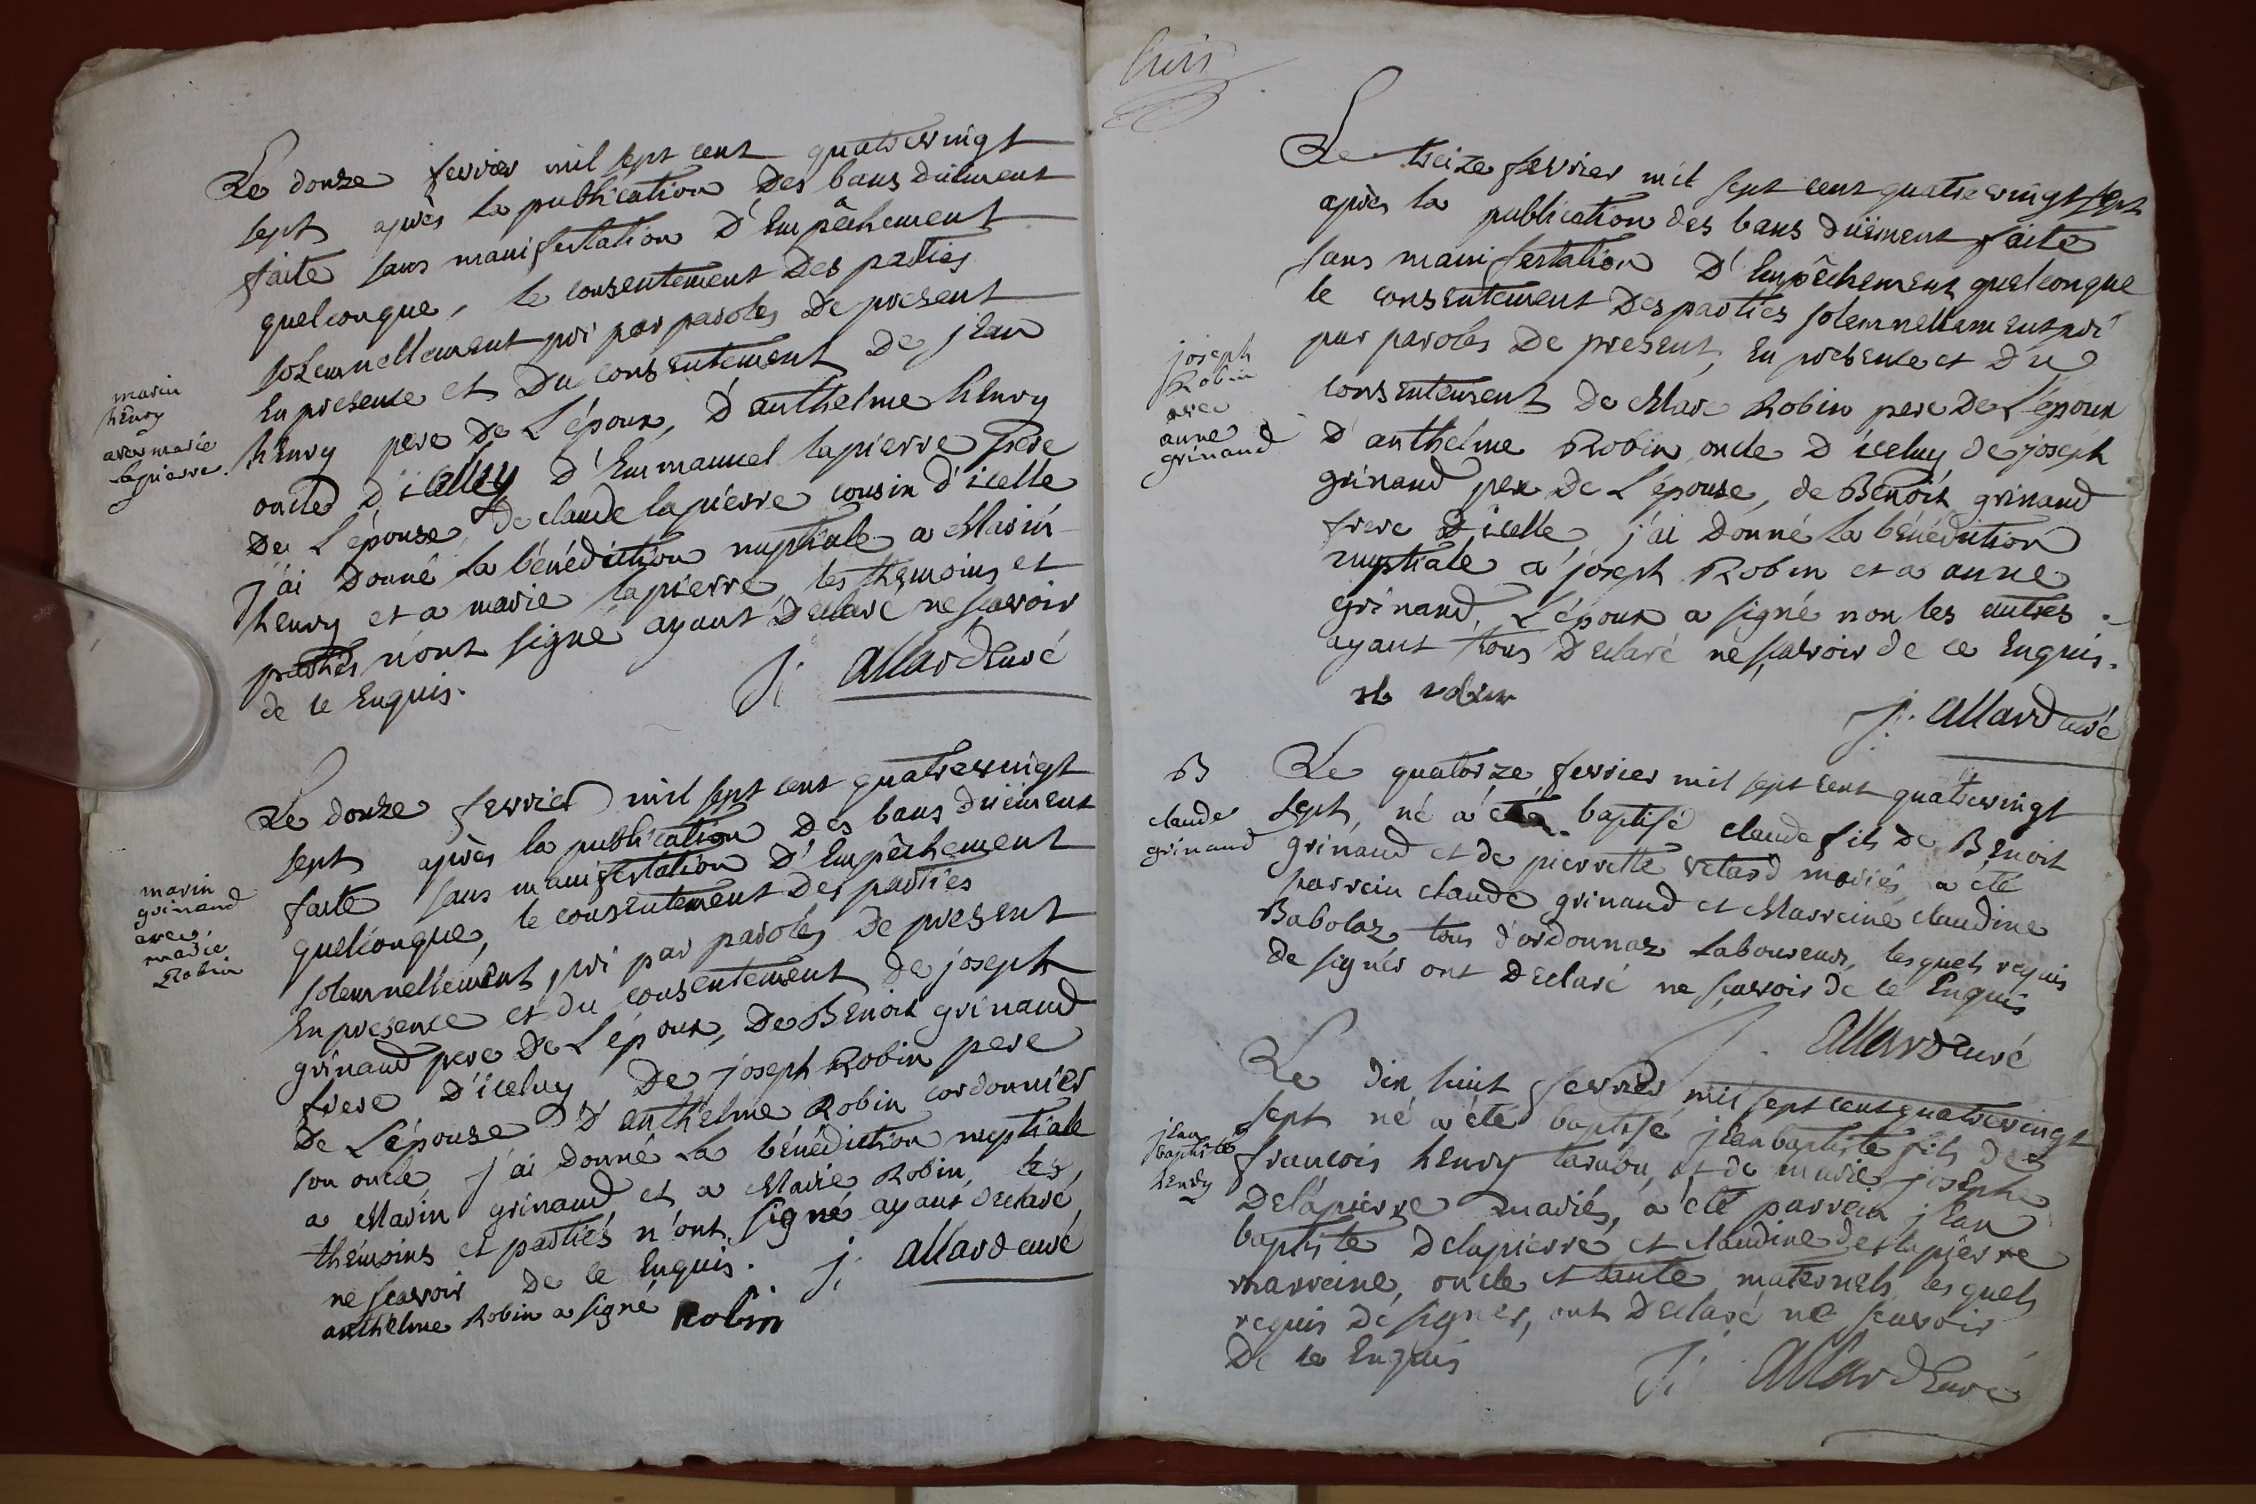 Le douze fevrier mil sept cent quatrevingt
sept après la publication des bans düement
faite sans manifestation d'Empêchement
quelconque, le consentement des parties
solemnellement pri par paroles de present
En presence et du consentement de jean
henry pere de L'époux, d'anthelme henry
oncle d'icelluy d'Emmanuel lapierre frere
De L'épouse, de claude lapierre cousin d'icelle
j'ai donné la bénédiction nuptiale a Marin
henry et a marie lapierre, les themoins et
parties n'ont signé ayant declaré ne scavoir
de ce Enquis.
j: allard curé
marin
henry
avec marie
lapierre.
Le douze fevrier mil sept cent quatrevingt
sept après la publication des bans düement
faite sans manifestation d'Empêchement
quelconque, le consentement des parties
solemnellement pri par paroles de present
En presence et du consentement de joseph
grinand pere de L'époux, de Benoit grinand
frere d'iceluy de joseph Robin pere
de L'épouse d'anthelme Robin cordonnier
son oncle j'ai donné la bénédiction nuptiale
a Marin grinand et a Marie Robin, les
themoins et parties n'ont signé ayant declaré
ne scavoir de ce Enquis.
j: allard curé
anthelme Robin a signé Robin
marin
grinand
avec
marie
Robin
Le treize fevrier mil sept cent quatrevingt sept
après la publication des bans düement faite
sans manifestation d'Empêchement quelconque
le consentement des parties solemnellement pri
par paroles de present, En presence et du
consentement de Marc Robin pere de L'époux
d'anthelme Robin oncle d'iceluy de joseph
grinand pere de L'épouse, de Benoit grinand
frere d'icelle, j'ai donné la bénédiction
nuptiale a joseph Robin et a anne
grinand, L'époux a signé non les autres
ayant tous declaré ne scavoir de ce Enquis.
robin
j: allard curé
joseph
Robin
avec
anne
grinand
B
claude
grinand
Le quatorze fevrier mil sept cent quatrevingt
sept, né a été baptisé claude fils de Benoit
grinand et de pierrette retard mariés, a été
parrein claude grinand et Marreine claudine
Babolaz tous d'ordonnaz laboureurs, lesquels requis
de signer ont declaré ne scavoir de ce Enquis
allard curé
Le dix huit fevrier mil sept cent quatrevingt
sept né a été baptisé jean baptiste fils de
francois henry et de marie joseph
Delapierre mariés, a été parrein jean
baptiste delapierre et claudine delapierre
marreine, oncle et tante maternels, lesquels
requis de signer, ont declaré ne scavoir
De ce Enquis
j: allard curé
jean
baptiste
henry